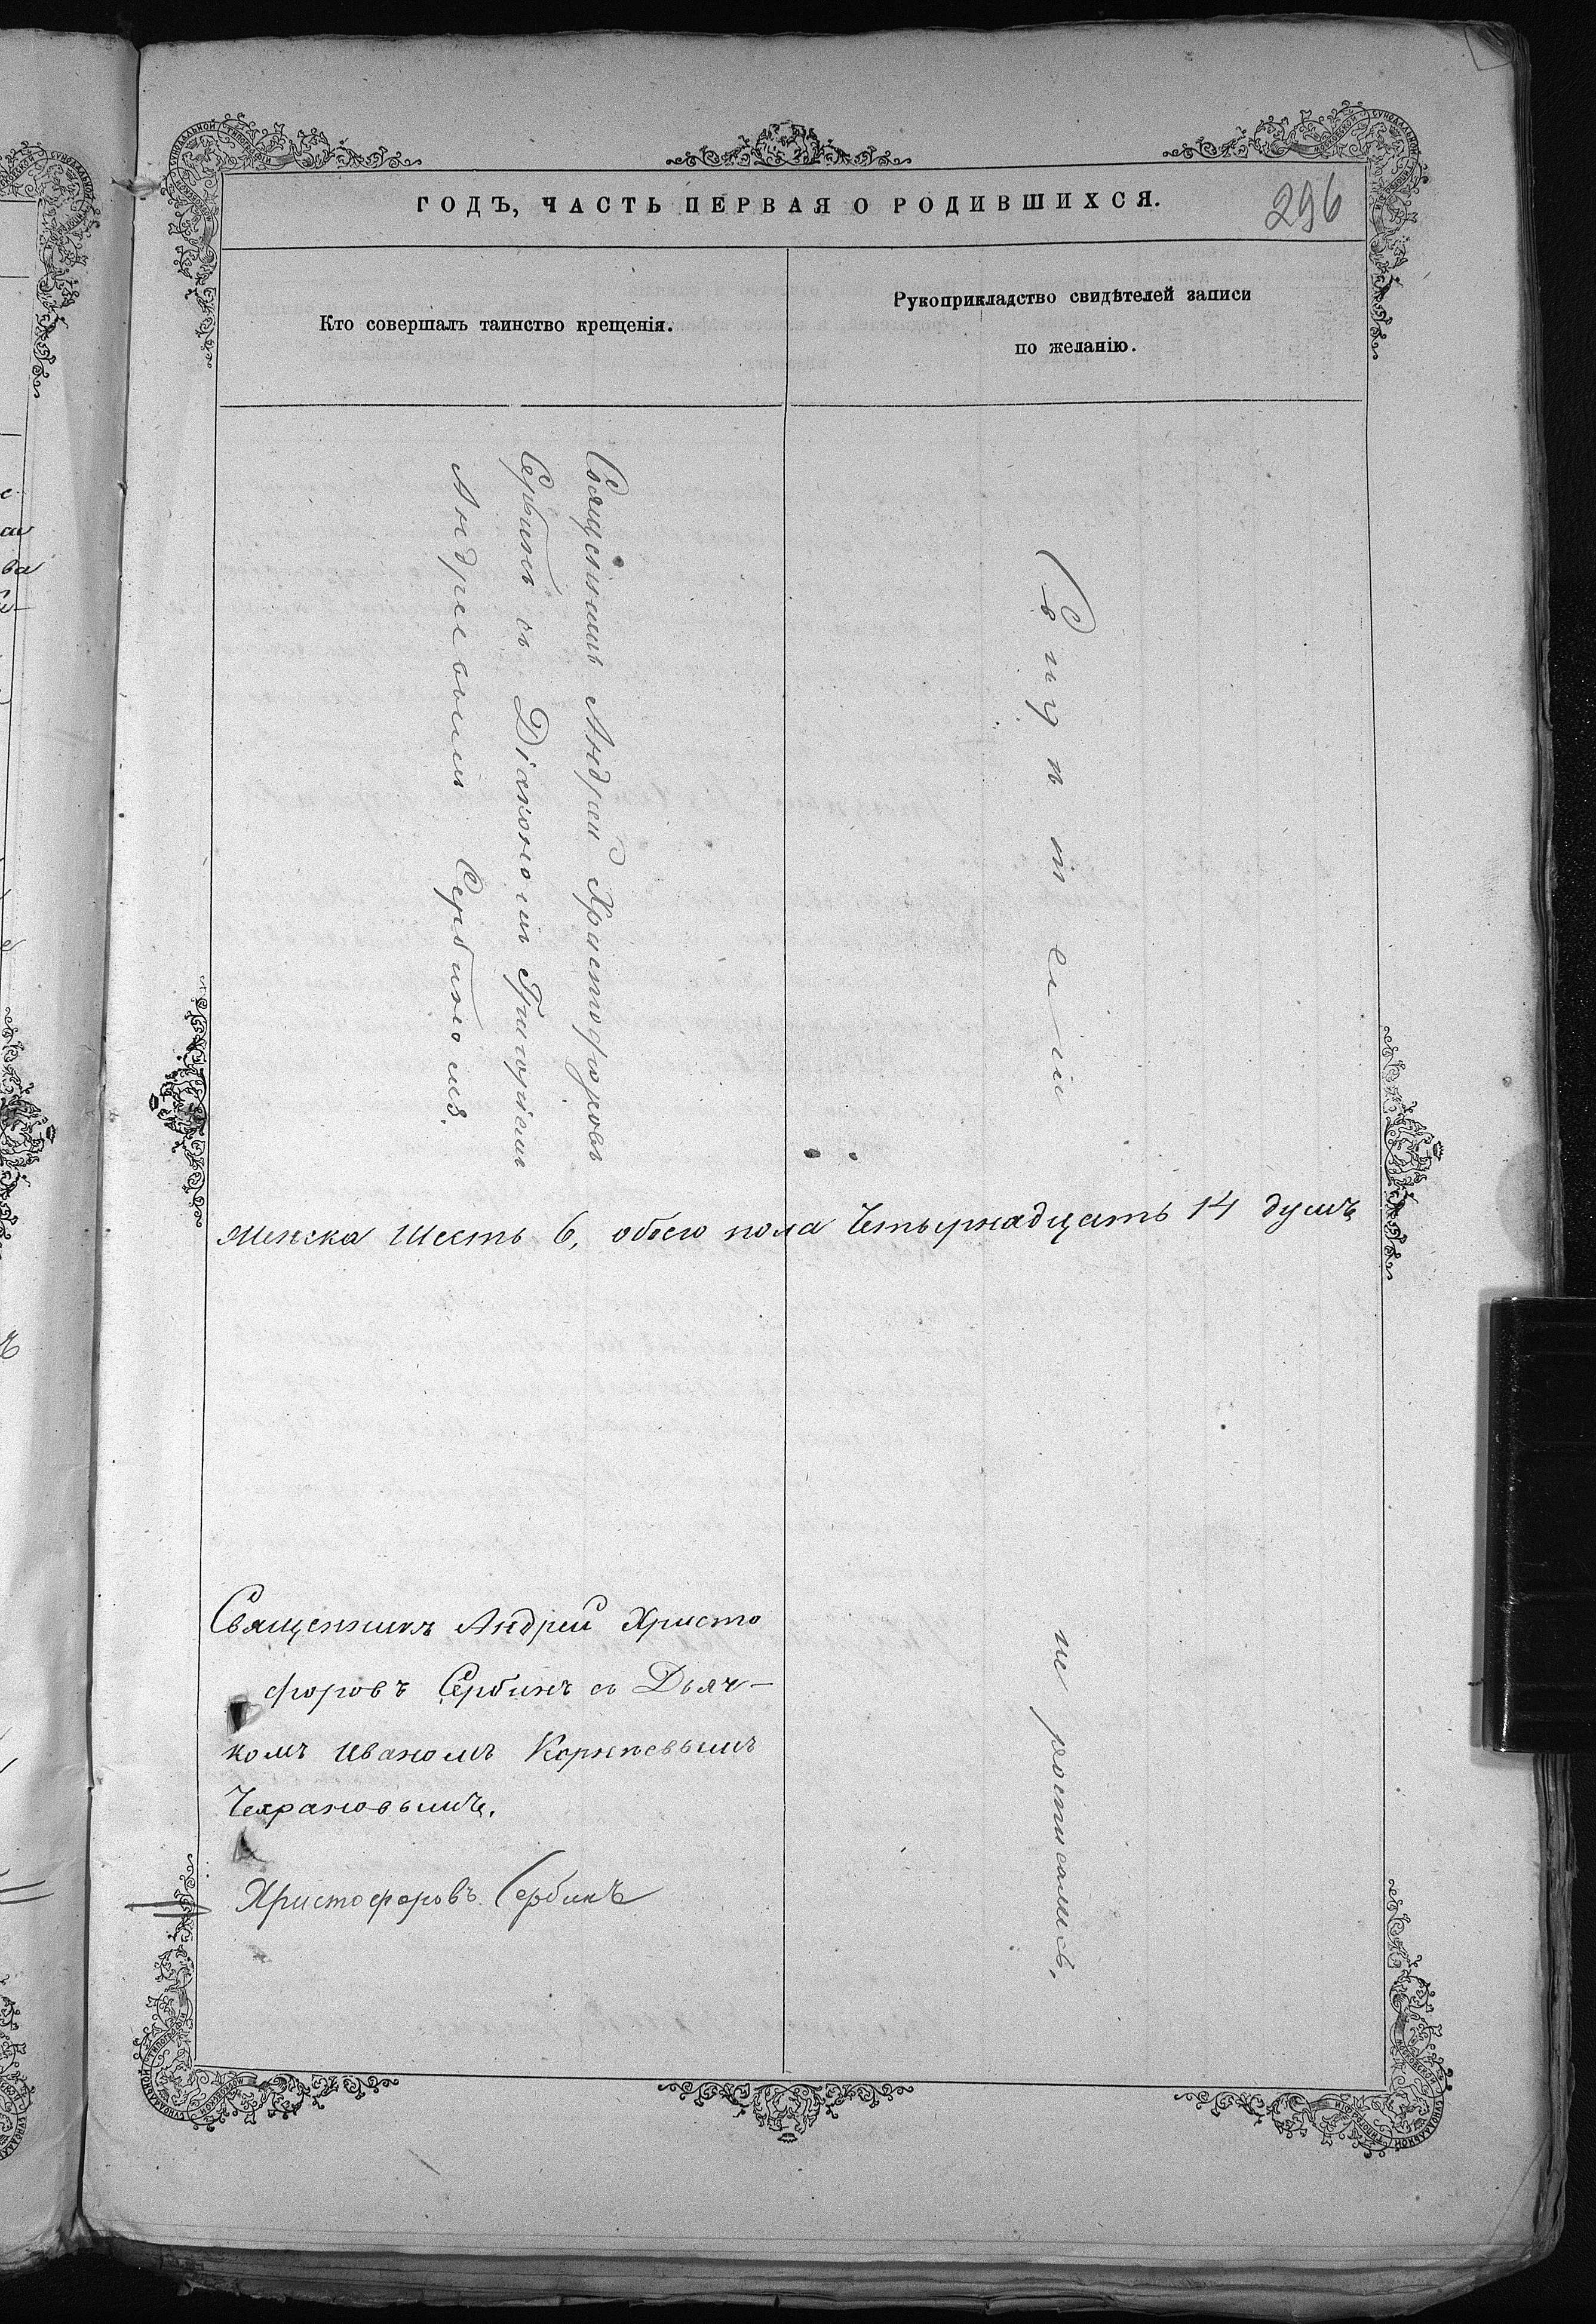 ГОДЪ, ЧАСТЬ ПЕРВАЯ О РОДИВШИХСЯ.
296
Кто совершалъ таинство крещенія.
Рукоприкладство свидѣтелей записи
по желанію.
Священникъ Андрей Христофоровъ
Сербинъ съ Діакономъ Григоріемъ
Андреевымъ Сербиномъ.
женска Шесть 6, обоего пола Четырнадцать 14 душъ
Священникъ Андрей Христо
форовъ Сербинъ съ Дьяч-
комъ Иваномъ
Христофоровъ Сербинъ
не росписались.